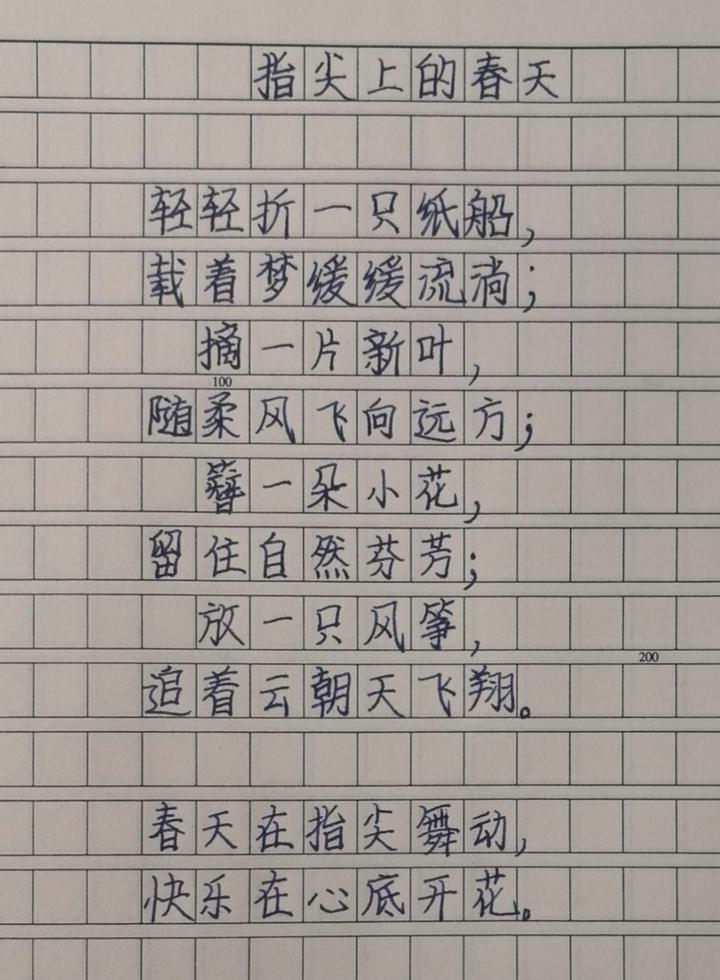 指尖上的春天
轻轻折一只纸船，
载着梦缓缓流淌；
摘一片新叶，
100
随柔风飞向远方；
簪一朵小花，
留住自然芬芳；
放一只风筝，
200
追着云朝天飞翔。
春天在指尖舞动，
快乐在心底开花。